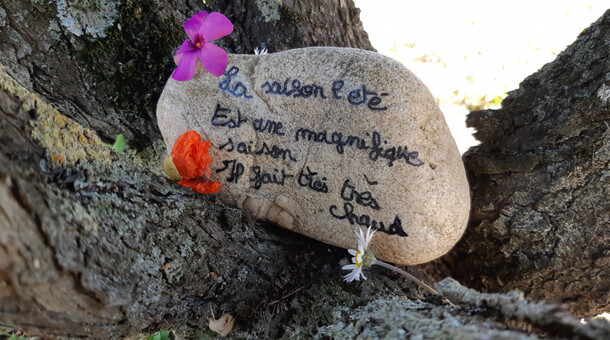 La saison l'été
Est une magnifique
saison
Il fait très très
chaud